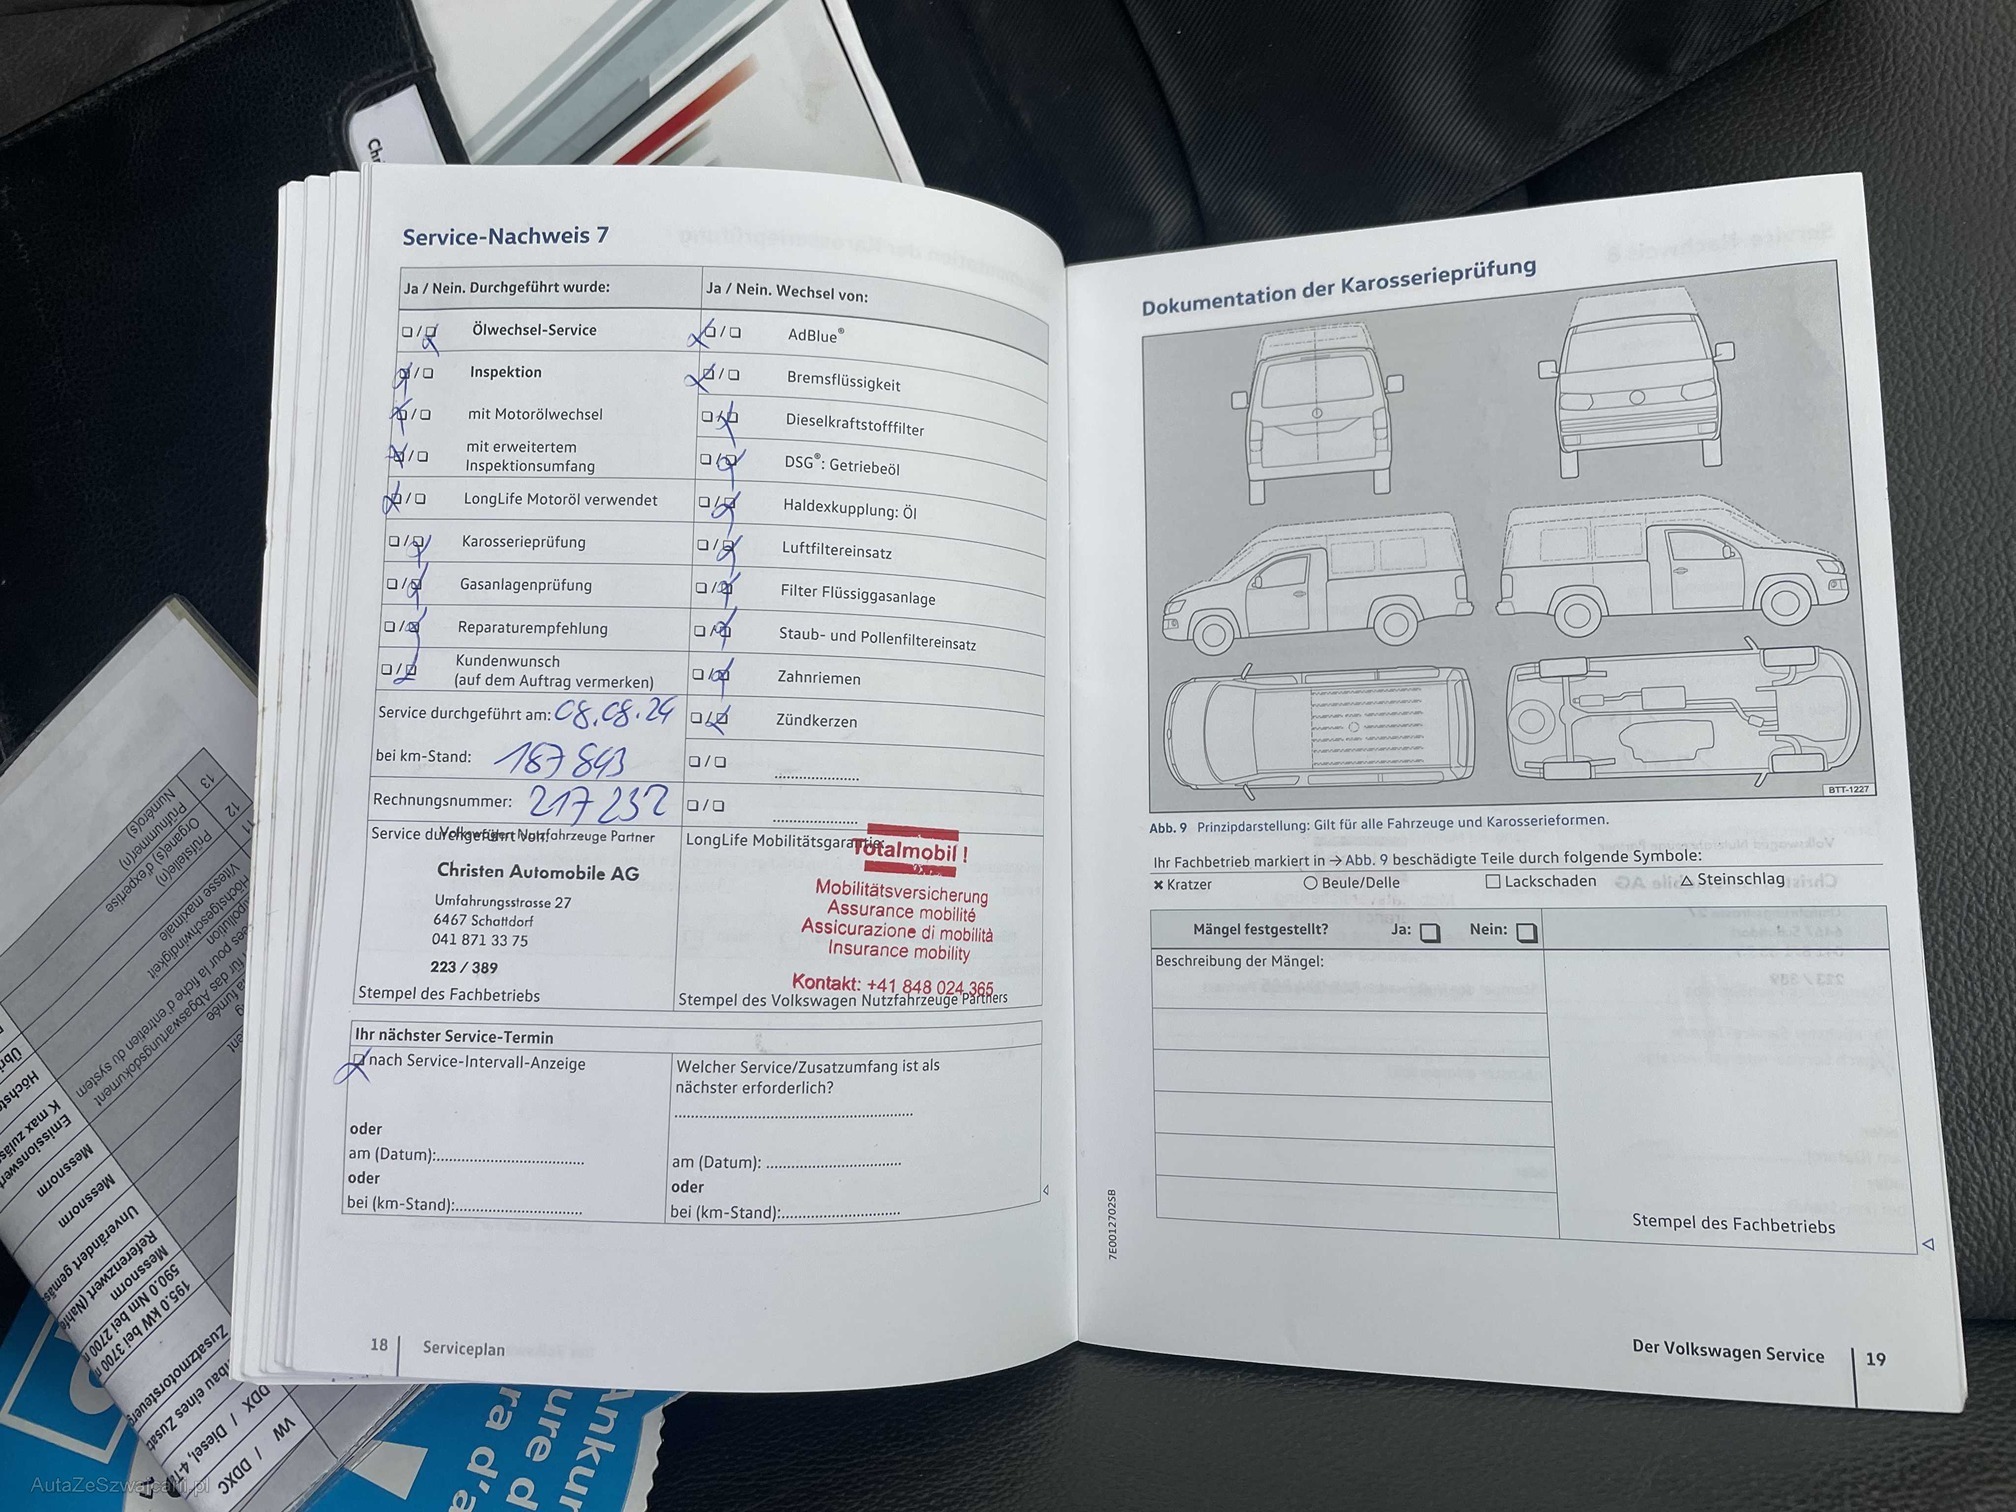 Service-Nachweis 7
Ja / Nein. Durchgeführt wurde:
Ölwechsel-Service
Inspektion
mit Motorölwechsel
mit erweitertem
Inspektionsumfang
LongLife Motoröl verwendet
Karosserieprüfung
Gasanlagenprüfung
Reparaturempfehlung
Kundenwunsch
(auf dem Auftrag vermerken)
Service durchgeführt am: 08.08.24
bei km-Stand: 187 893
Rechnungsnummer: 217 232
Ja / Nein. Wechsel von:
AdBlue®
Bremsflüssigkeit
Dieselkraftstofffilter
DSG®: Getriebeöl
Haldexkupplung: Öl
Luftfiltereinsatz
Filter Flüssiggasanlage
Staub- und Pollenfiltereinsatz
Zahnriemen
Zündkerzen
Service durchgeführt von:
Volkswagen Nutzfahrzeuge Partner
Christen Automobile AG
Umfahrungsstrasse 27
6467 Schattdorf
041 871 33 75
223 / 389
Stempel des Fachbetriebs
LongLife Mobilitätsgarantie:
Totalmobil !
Mobilitätsversicherung
Assurance mobilité
Assicurazione di mobilità
Insurance mobility
Kontakt: +41 848 024 365
Stempel des Volkswagen Nutzfahrzeuge Partners
Ihr nächster Service-Termin
nach Service-Intervall-Anzeige
oder
am (Datum):
oder
bei (km-Stand):
Welcher Service/Zusatzumfang ist als
nächster erforderlich?
am (Datum):
oder
bei (km-Stand):
18 Serviceplan
Dokumentation der Karosserieprüfung
BTT-1227
Abb. 9 Prinzipdarstellung: Gilt für alle Fahrzeuge und Karosserieformen.
Ihr Fachbetrieb markiert in → Abb. 9 beschädigte Teile durch folgende Symbole:
Kratzer
Beule/Delle
Lackschaden
Steinschlag
Mängel festgestellt? Ja: Nein:
Beschreibung der Mängel:
Stempel des Fachbetriebs
7E0012702SB
Der Volkswagen Service 19
13
12
11
Numéro(s)
Prüfnummer(n)
Organe(s) d'expertise
Prüfstelle(n)
Vitesse maximale
Höchstgeschwindigkeit
Messnorm
Messnorm
Unverändert gemäss
Referenzwert (Nahfe
Messnorm
590.0 Nm bei 2700
195.0 kW bei 3700
Zusatzmotorsteuer
VW / DDXC
AutaZeSzwajcarii.pl